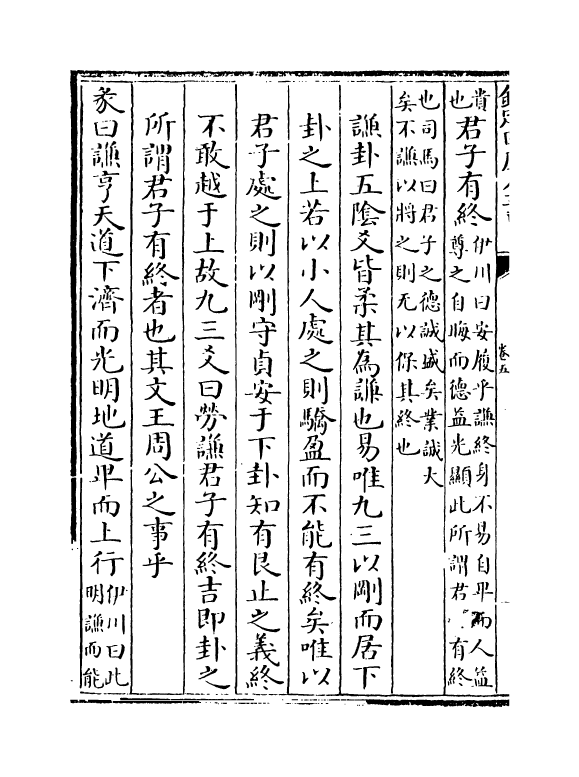 卷五
貴
也
君子有終
伊川曰安履乎謙終身不易自卑而人益
尊之自晦而德益光顯此所謂君有終
也司馬曰君子之德誠盛矣業誠大
矣不謙以將之則无以保其終也
謙卦五陰爻皆柔其為謙也易唯九三以剛而居下
卦之上若以小人處之則驕盈而不能有終矣唯以
君子處之則以剛守貞安于下卦知有艮止之義終
不敢越于上故九三爻曰勞謙君子有終吉即卦之
所謂君子有終者也其文王周公之事乎
彖曰謙亨天道下濟而光明地道卑而上行
伊川曰此
明謙而能